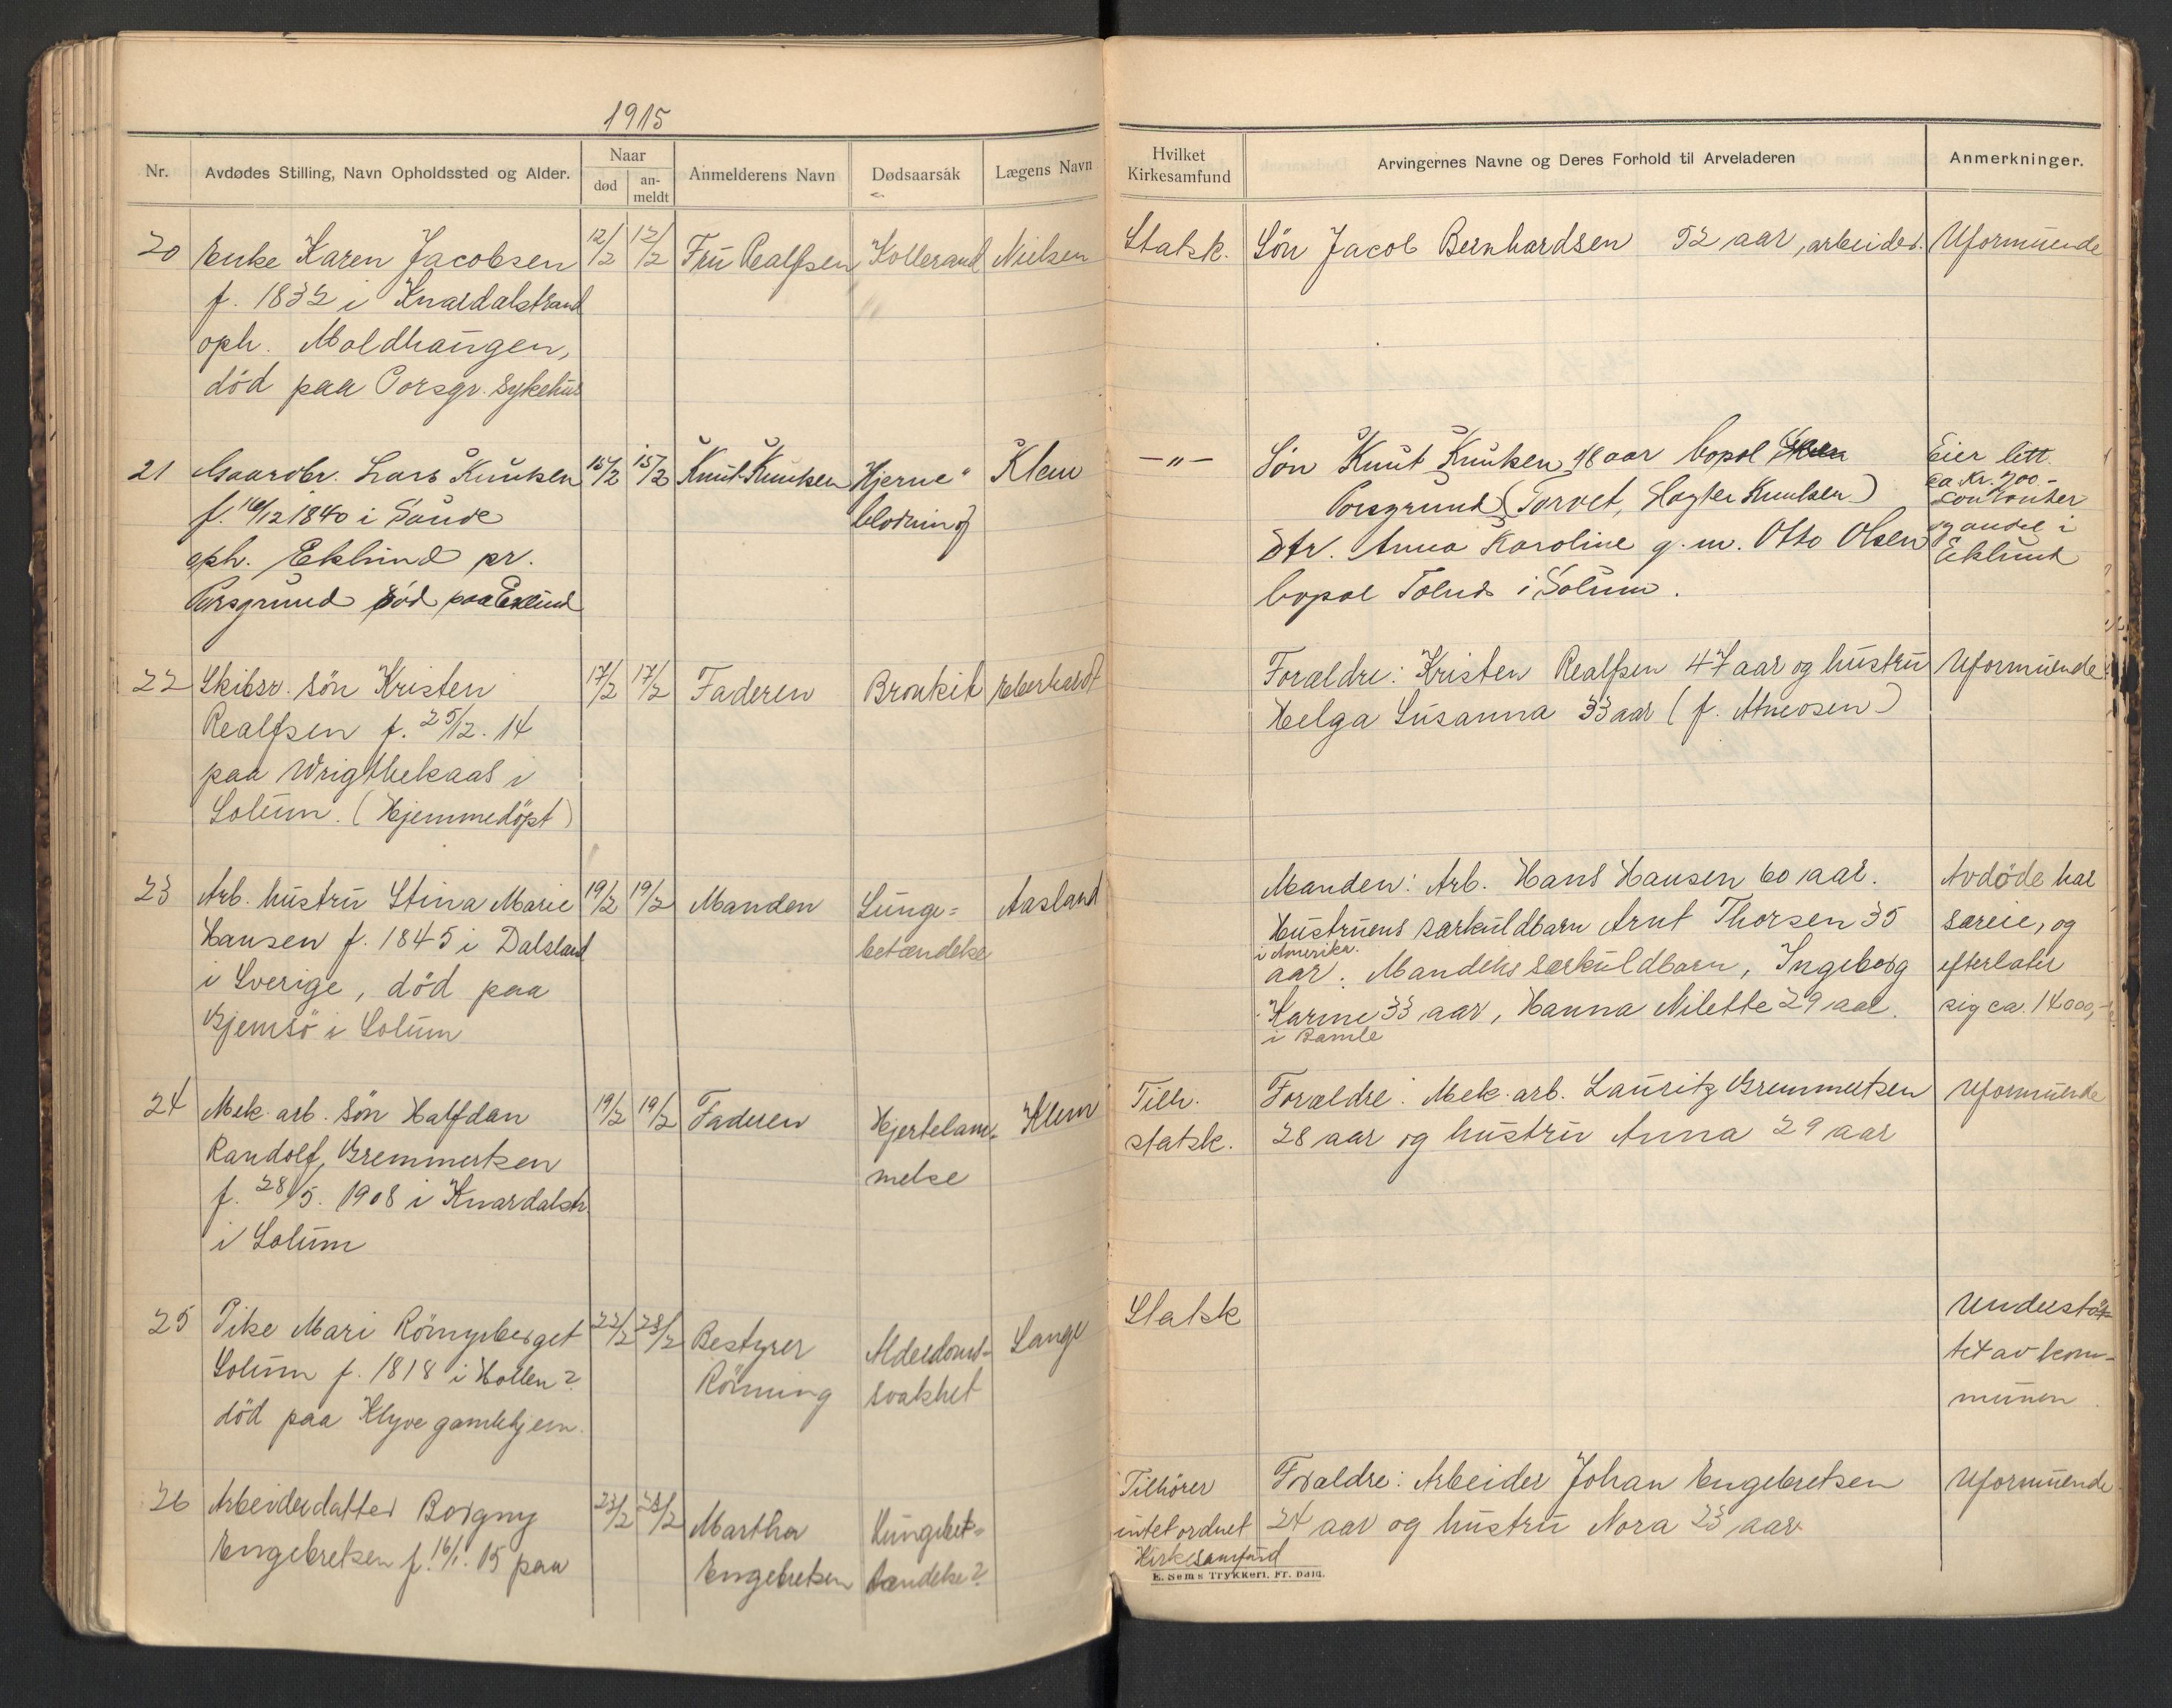 1915
Nr. Avdødes Stilling, Navn Opholdssted og Alder. Naar død an-meldt Anmelderens Navn Dødsaarsåk Lægens Navn
Hvilket Kirkesamfund Arvingernes Navne og Deres Forhold til Arveladeren Anmerkninger.
20 Enke Karen Jacobsen 12/2 12/2 Fru Realfsen Nielsen
f. 1832 i Knardalstrand
oph. Moldhaugen,
död paa Porsgr. Sykehus
Statsk. Sön Jacob Bernhardsen 52 aar, arbeider. Uformuende
21 Gaardbr. Lars Knutsen 15/2 15/2 Knut Knutsen Hjerne" Klem
f. 16/12 1840 i Saude blödning
oph. Eklund pr.
Porsgrund död paa Eklund
—„— Sön Knut Knutsen 48 aar bopæl
Porsgrund (Torvet, Slagter Knutsen)
Dtr. Anna Karoline g. m. Otto Olsen
bopæl i Solum.
Eier litt
ca. Kr. 700.-
og andel i
Eklund
22 Skibsr. sön Kristen 17/2 17/2 Faderen Bronkit Eberhardt
Realfsen f. 25/12. 14
paa Wrigthekaas i
Solum. (Hjemmedöpt)
Forældre: Kristen Realfsen 47 aar og hustru Uformuende
Helga Susanna 33 aar (f.
23 Arb. hustru Stina Marie 19/2 19/2 Manden Lunge= Aasland
Hansen f. 1845 i Dalsland betændelse
i Sverige, död paa
Gjemsö i Solum
Manden: Arb. Hans Hansen 60 aar. Avdöde har
Hustruens særkuldbarn Arnt Thorsen 35 særeie, og
i Amerika.
aar. Mandens særkuldbarn, Ingeborg efterlater
Karine 33 aar, Hanna Nilette 29 aar. sig ca. 14000,-
i Bamle
24 Mek. arb. sön Halfdan 19/2 19/2 Faderen Hjertelam- Klem
Randolf, Gremmertsen melse
f. 28/5. 1908 i Knardalstr.
i Solum
Tilh. Forældre: Mek. arb. Lauritz Gremmertsen Uformuende
statsk. 28 aar og hustru Anna 29 aar
25 Pike Mari Römyrberget 22/2 23/2 Bestyrer Alderdoms- Lange
Solum f. 1818 i Hollen? Rönning svakhet
död paa Klyve gamlehjem.
Statsk Understöt-
tet av kom-
munen.
26 Arbeiderdatter Borgny 23/2 23/2 Martha Lungebet=
Engebretsen f. 16/1. 15 paa Engebretsen ændelse?
Tilhörer Forældre: Arbeider Johan Engebretsen Uformuende
intet ordnet 24 aar og hustru Nora 23 aar
Kirkesamfund
E. Sems Trykkeri, Fr. hald.